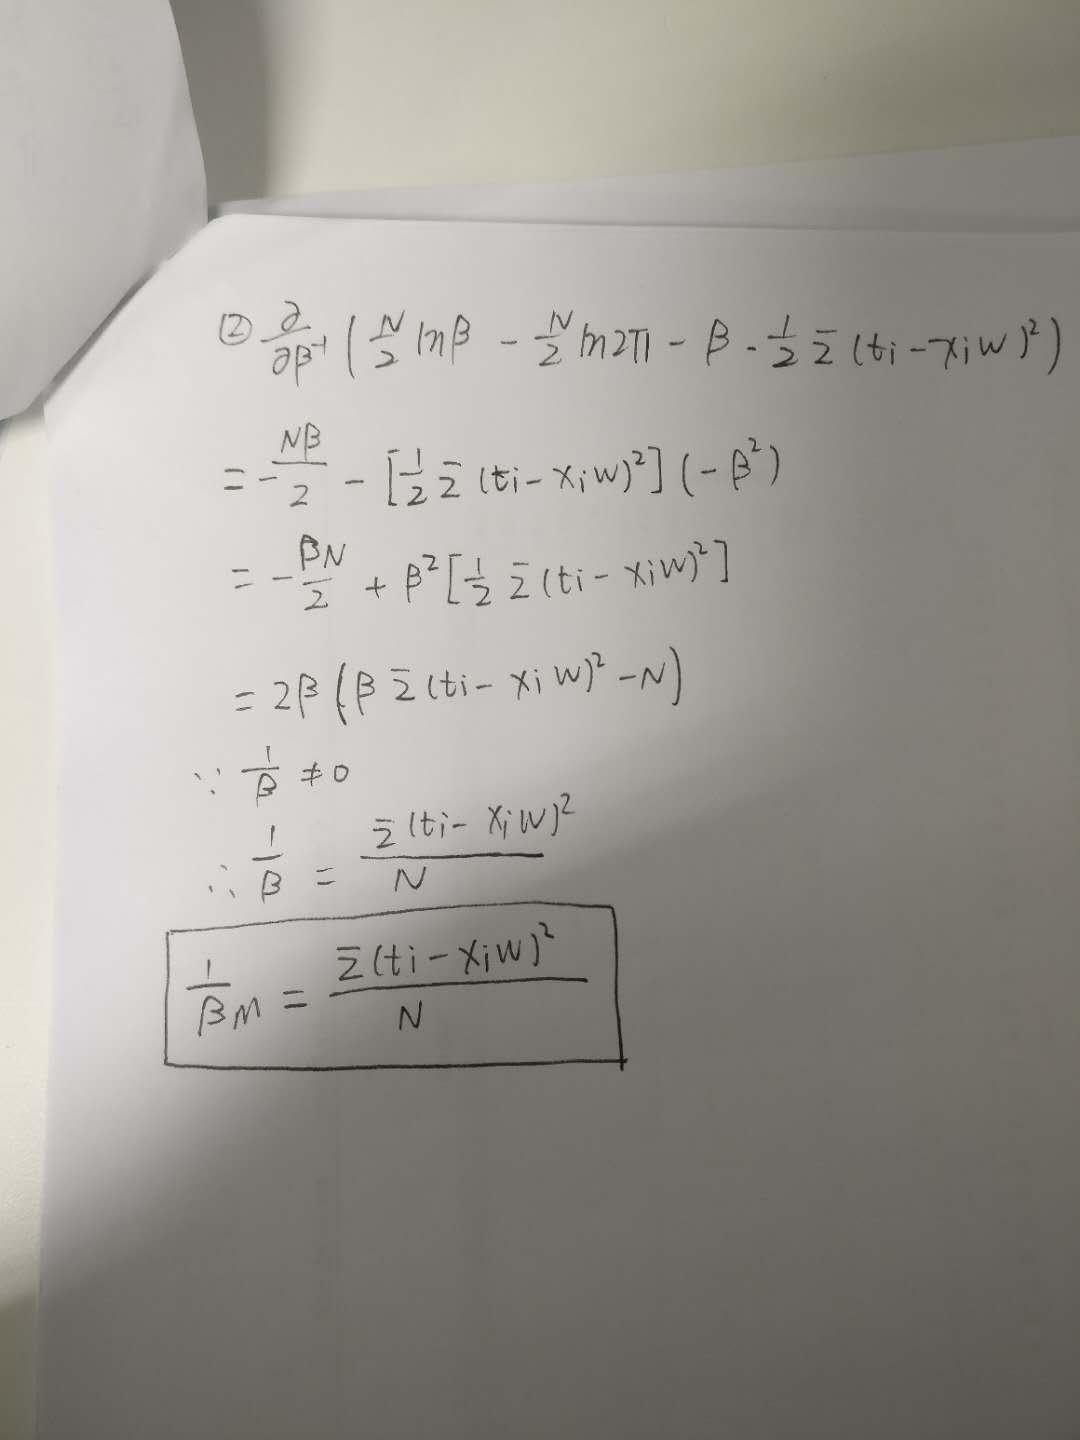 ② ∂/∂β⁻¹ ( N/2 lnβ - N/2 ln2π - β · 1/2 Σ (ti - xiw)² )
= - Nβ/2 - [ 1/2 Σ (ti - xiw)² ] (-β²)
= - βN/2 + β² [ 1/2 Σ (ti - xiw)² ]
= 2β ( β Σ (ti - xiw)² - N )
∵ 1/β ≠ 0
∴ 1/β = Σ (ti - xiw)² / N
1/βM = Σ (ti - xiw)² / N